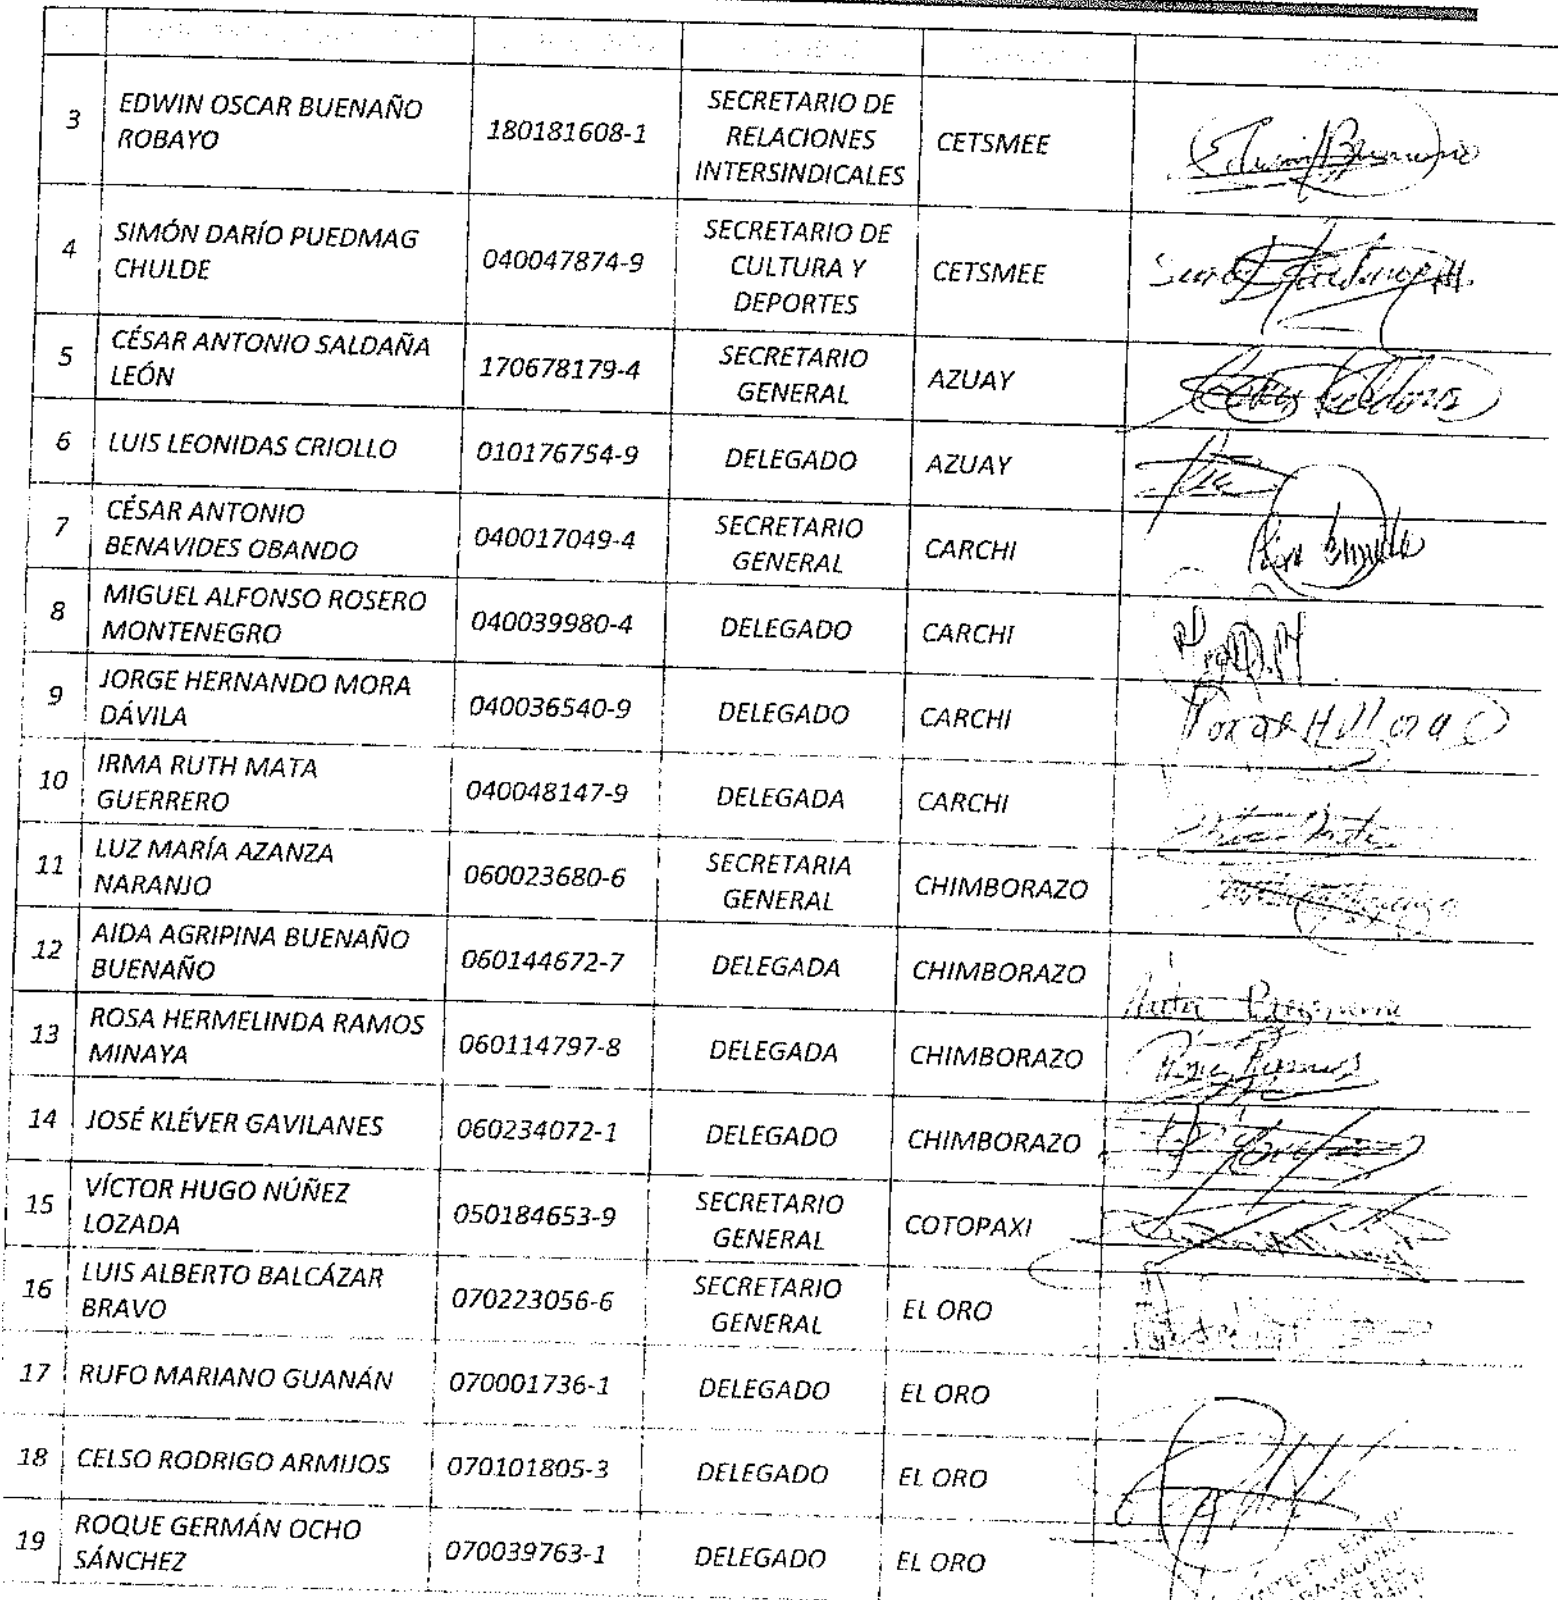 3 EDWIN OSCAR BUENAÑO ROBAYO 180181608-1 SECRETARIO DE RELACIONES INTERSINDICALES CETSMEE
4 SIMÓN DARÍO PUEDMAG CHULDE 040047874-9 SECRETARIO DE CULTURA Y DEPORTES CETSMEE
5 CÉSAR ANTONIO SALDAÑA LEÓN 170678179-4 SECRETARIO GENERAL AZUAY
6 LUIS LEONIDAS CRIOLLO 010176754-9 DELEGADO AZUAY
7 CÉSAR ANTONIO BENAVIDES OBANDO 040017049-4 SECRETARIO GENERAL CARCHI
8 MIGUEL ALFONSO ROSERO MONTENEGRO 040039980-4 DELEGADO CARCHI
9 JORGE HERNANDO MORA DÁVILA 040036540-9 DELEGADO CARCHI
10 IRMA RUTH MATA GUERRERO 040048147-9 DELEGADA CARCHI
11 LUZ MARÍA AZANZA NARANJO 060023680-6 SECRETARIA GENERAL CHIMBORAZO
12 AIDA AGRIPINA BUENAÑO BUENAÑO 060144672-7 DELEGADA CHIMBORAZO
13 ROSA HERMELINDA RAMOS MINAYA 060114797-8 DELEGADA CHIMBORAZO
14 JOSÉ KLÉVER GAVILANES 060234072-1 DELEGADO CHIMBORAZO
15 VÍCTOR HUGO NÚÑEZ LOZADA 050184653-9 SECRETARIO GENERAL COTOPAXI
16 LUIS ALBERTO BALCÁZAR BRAVO 070223056-6 SECRETARIO GENERAL EL ORO
17 RUFO MARIANO GUANÁN 070001736-1 DELEGADO EL ORO
18 CELSO RODRIGO ARMIJOS 070101805-3 DELEGADO EL ORO
19 ROQUE GERMÁN OCHO SÁNCHEZ 070039763-1 DELEGADO EL ORO